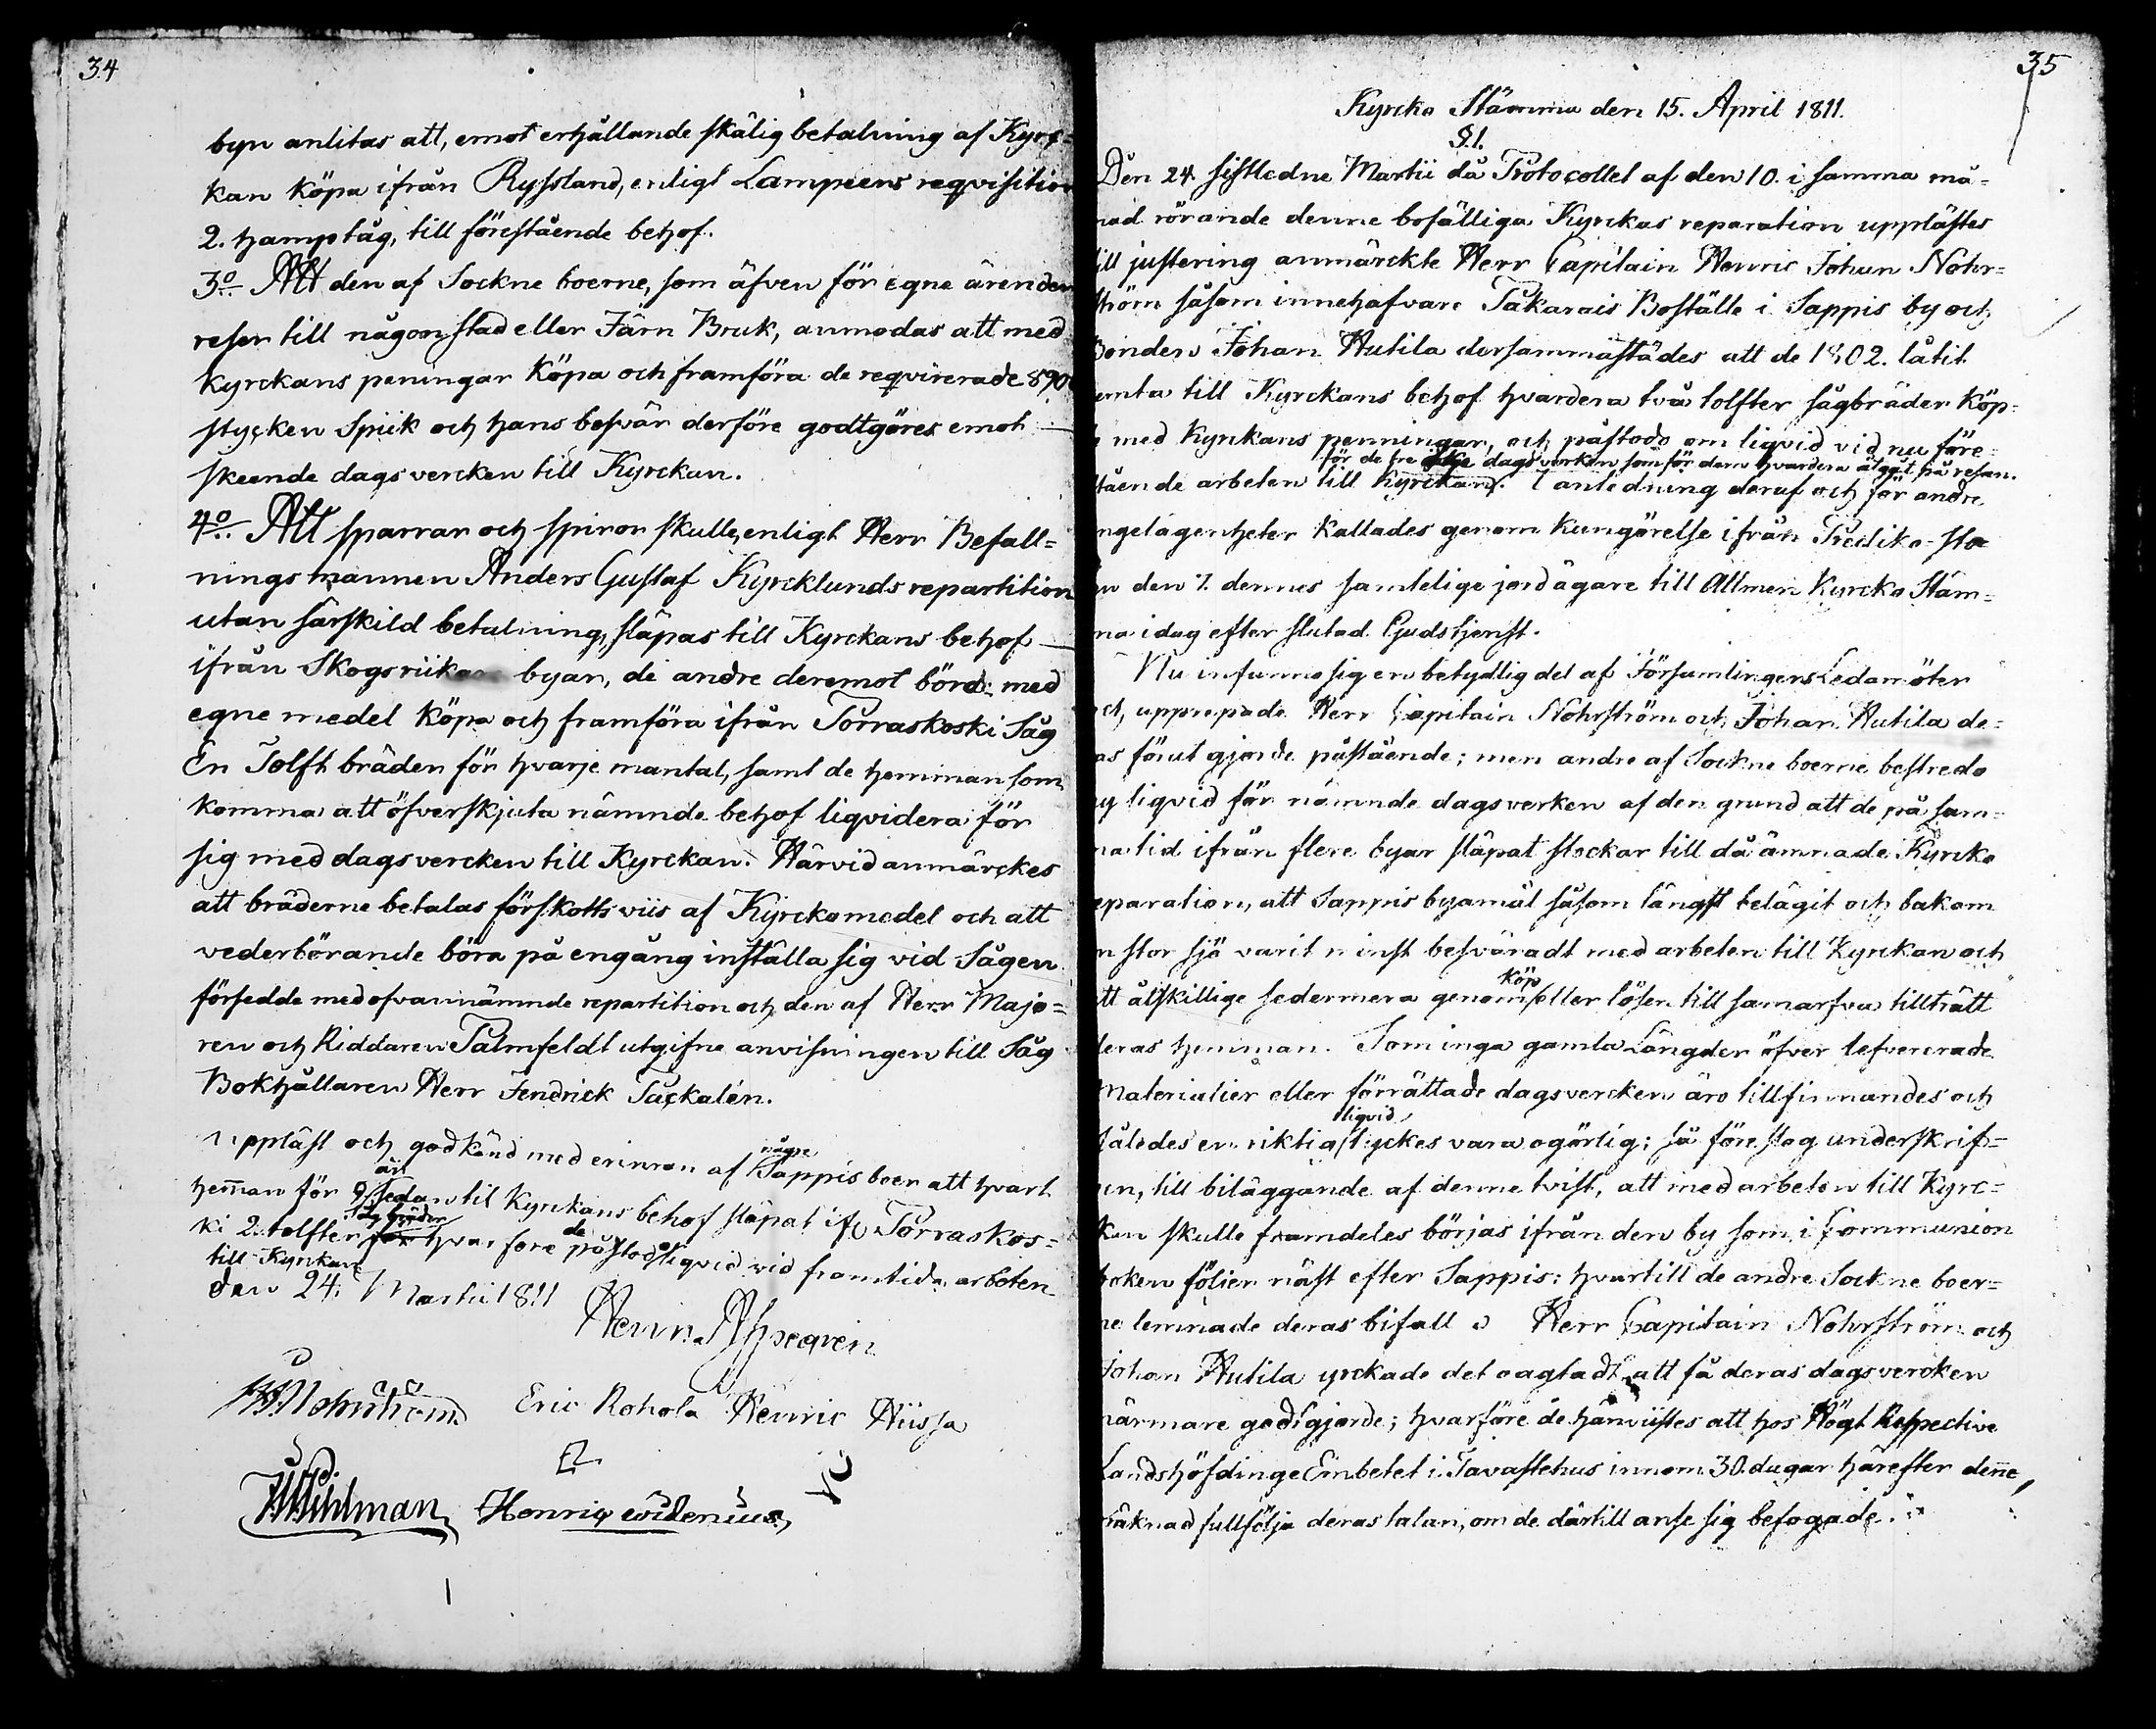 34
byn anlitas att, emot erhållande skälig betalning af Kyrc=
kan köpa ifrån Ryssland, enligt Lampeens reqvisition
2. hamptåg, till förestående behof.
3:o Att den af Sockne boerne, som äfven för egne ärenden
reser till någon stad eller Järn Bruk, anmodas att med
Kyrckans peningar köpa och framföra de reqvirerade 890
stycken Spiik och hans besvär derföre godtgöres emot
skeende dagsvercken till Kyrckan.
4:o Att sparrar och spiror skulle, enligt Herr Befall=
ningsmannen Anders Gustaf Kyrcklunds repartition
utan särskild betalning, släpas till Kyrckans behof
ifrån Skogsriika byar, de andre deremot börd: med
egne medel köpa och framföra ifrån Torraskoski Såg
En Tolft bräden för hvarje mantal, samt de hemman som
komma att öfverskjuta nämnde behof liqvidera för
sig med dagsvercken till Kyrckan. Härvid anmärckes
att bräderne betalas förskotts viis af Kyrckomedel och att
vederbörande böra på engång inställa sig vid Sågen
försedde med ofvannämnde repartition och den af Herr Majo=
ren och Riddaren Palmfeldt utgifne anvisningen till Såg
Bokhållaren Herr Fendrick Tackalén.
Uppläst och godkänd med erinran af någre Sappis boer att hvart
heman för 9 år sedan til Kyrckans behof släpat ifr. Torraskos=
ki 2 tolfter sågbräder hvarfore de påstodo liqvid vid framtida arbeten
till Kyrckan
den 24. Martii 1811
Henr. Aspegrén
Eric Rohola Henric Hiissa
Henric Widenius
35
Kyrcko Stämma den 15. April 1811.
§.1.
Den 24 sistledne Martii då Protocollet af den 10. i samma må=
nad rörande denne bofälliga Kyrckas reparation upplästes
till justering anmärckte Herr Capitain Henric Johan Nohr=
ström såsom innehafvare Takarais Boställe i Sappis by och
Bonden Johan Hutila dersammastädes att de 1802. låtit
hemta till Kyrckans behof hvardera två tolfter sågbräder köp=
te med Kyrckans penningar, och påstodo om liqvid vid nu före=
för de tre dagsverken som för dem hvardera åtgåt på resan.
stående arbeten till Kyrckan. I anledning deraf och för andre
angelägenheter kallades genom kungörelse ifrån Prediko-sto
len den 7. dennes samtelige jordägare till Allmen Kyrcko Stäm=
ma idag efter slutad Gudstjenst.
Nu infunno sig en betydlig del af Församlingens Ledamöter
och, upprepade Herr Capitain Nohrström och Johan Hutila de=
ras förut gjorde påstående; men andre af Sockne boerne bestredo
ny liqvid för nämnde dagsverken af den grund att de på sam=
ma tid ifrån flere byar släpat stockar till då ämnade Kyrcko
reparation, att Sappis byamål såsom längst belägit och bakom
en stor sjö varit minst besväradt med arbeten till Kyrckan och
att åtskillige sedermera genom köp eller lösen till samarfva tillträtt
deras hemman. Som inga gamla Längder öfver lefvererade
Materialier eller förrättade dagsvercken äro tillfinnandes och
således en riktig liqvid tyckes vara ogörlig; så föreslog underskrif=
ven, till biläggande af denne tvist, att med arbeten till Kyrc=
kan skulle framdeles börjas ifrån den by som i Communion
boken följer näst efter Sappis: hvartill de andre Sockne boer=
ne lemnade deras bifall. Herr Capitain Nohrström och
Johan Hutila yrckade det oagtadt att få deras dagsvercken
närmare godtgjorde; hvarföre de hänviistes att hos Högt Respective
Landshöfdinge Embetet i Tavastehus innom 30. dagar härefter denne,
oräknad fullfölja deras talan, om de därtill anse sig befogade.